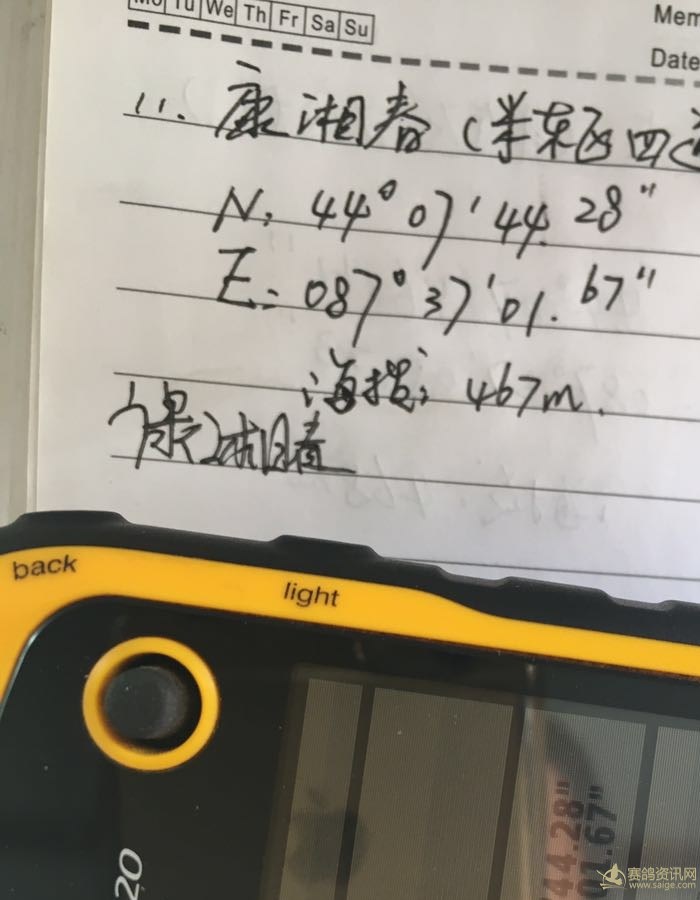 Mo Tu We Th Fr Sa Su
Mem
Date
11. 康湘春(米东区四道
N: 44° 07' 44.28"
E: 087° 37' 01.67"
海拔: 467m.
康湘春
back
light
20
44.28"
01.67"
赛鸽资讯网
www.saige.com